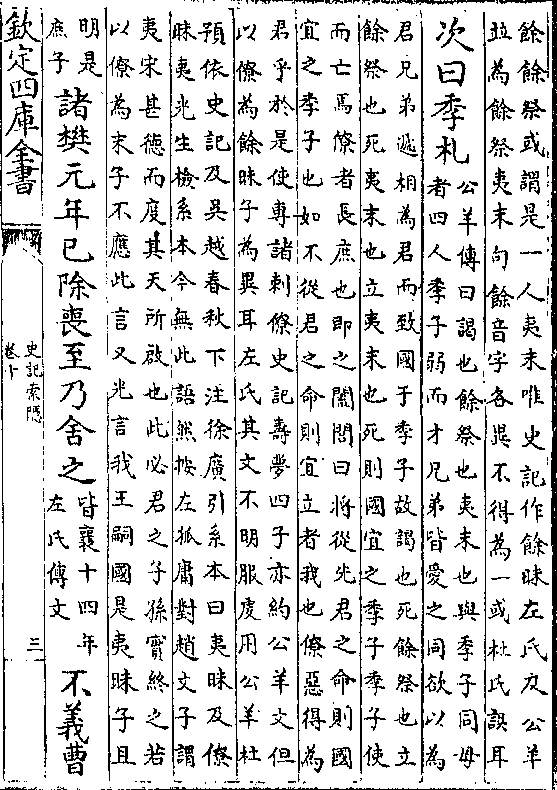 餘餘祭或謂是一人夷末唯史記作餘昧左氏及公羊
竝為餘祭夷末句餘音字各異不得為一或杜氏誤耳
次曰季札
公羊傳曰謁也餘祭也夷末也與季子同母
者四人季子弱而才兄弟皆愛之同欲以為
君兄弟遞相為君而致國于季子故謁也死餘祭也立
餘祭也死夷末也立夷末也死則國宜之季子季子使
而亡焉僚者長庶也即之闔閭曰將從先君之命則國
宜之季子也如不從君之命則宜立者我也僚惡得為
君乎於是使專諸刺僚史記壽夢四子亦約公羊文但
以僚為餘昧子為異耳左氏其文不明服虔用公羊杜
預依史記及吳越春秋下注徐廣引系本曰夷昧及僚
昧夷光生檢系本今無此語然按左狐庸對趙文子謂
夷宋甚德而度其天所啟也此必君之子孫實終之若
以僚為末子不應此言又光言我王嗣國是夷昧子且
明是
庶子
諸樊元年已除喪至乃舍之
皆襄十四年
左氏傳文
不義曹
欽定四庫全書
史記索隱
卷十
三